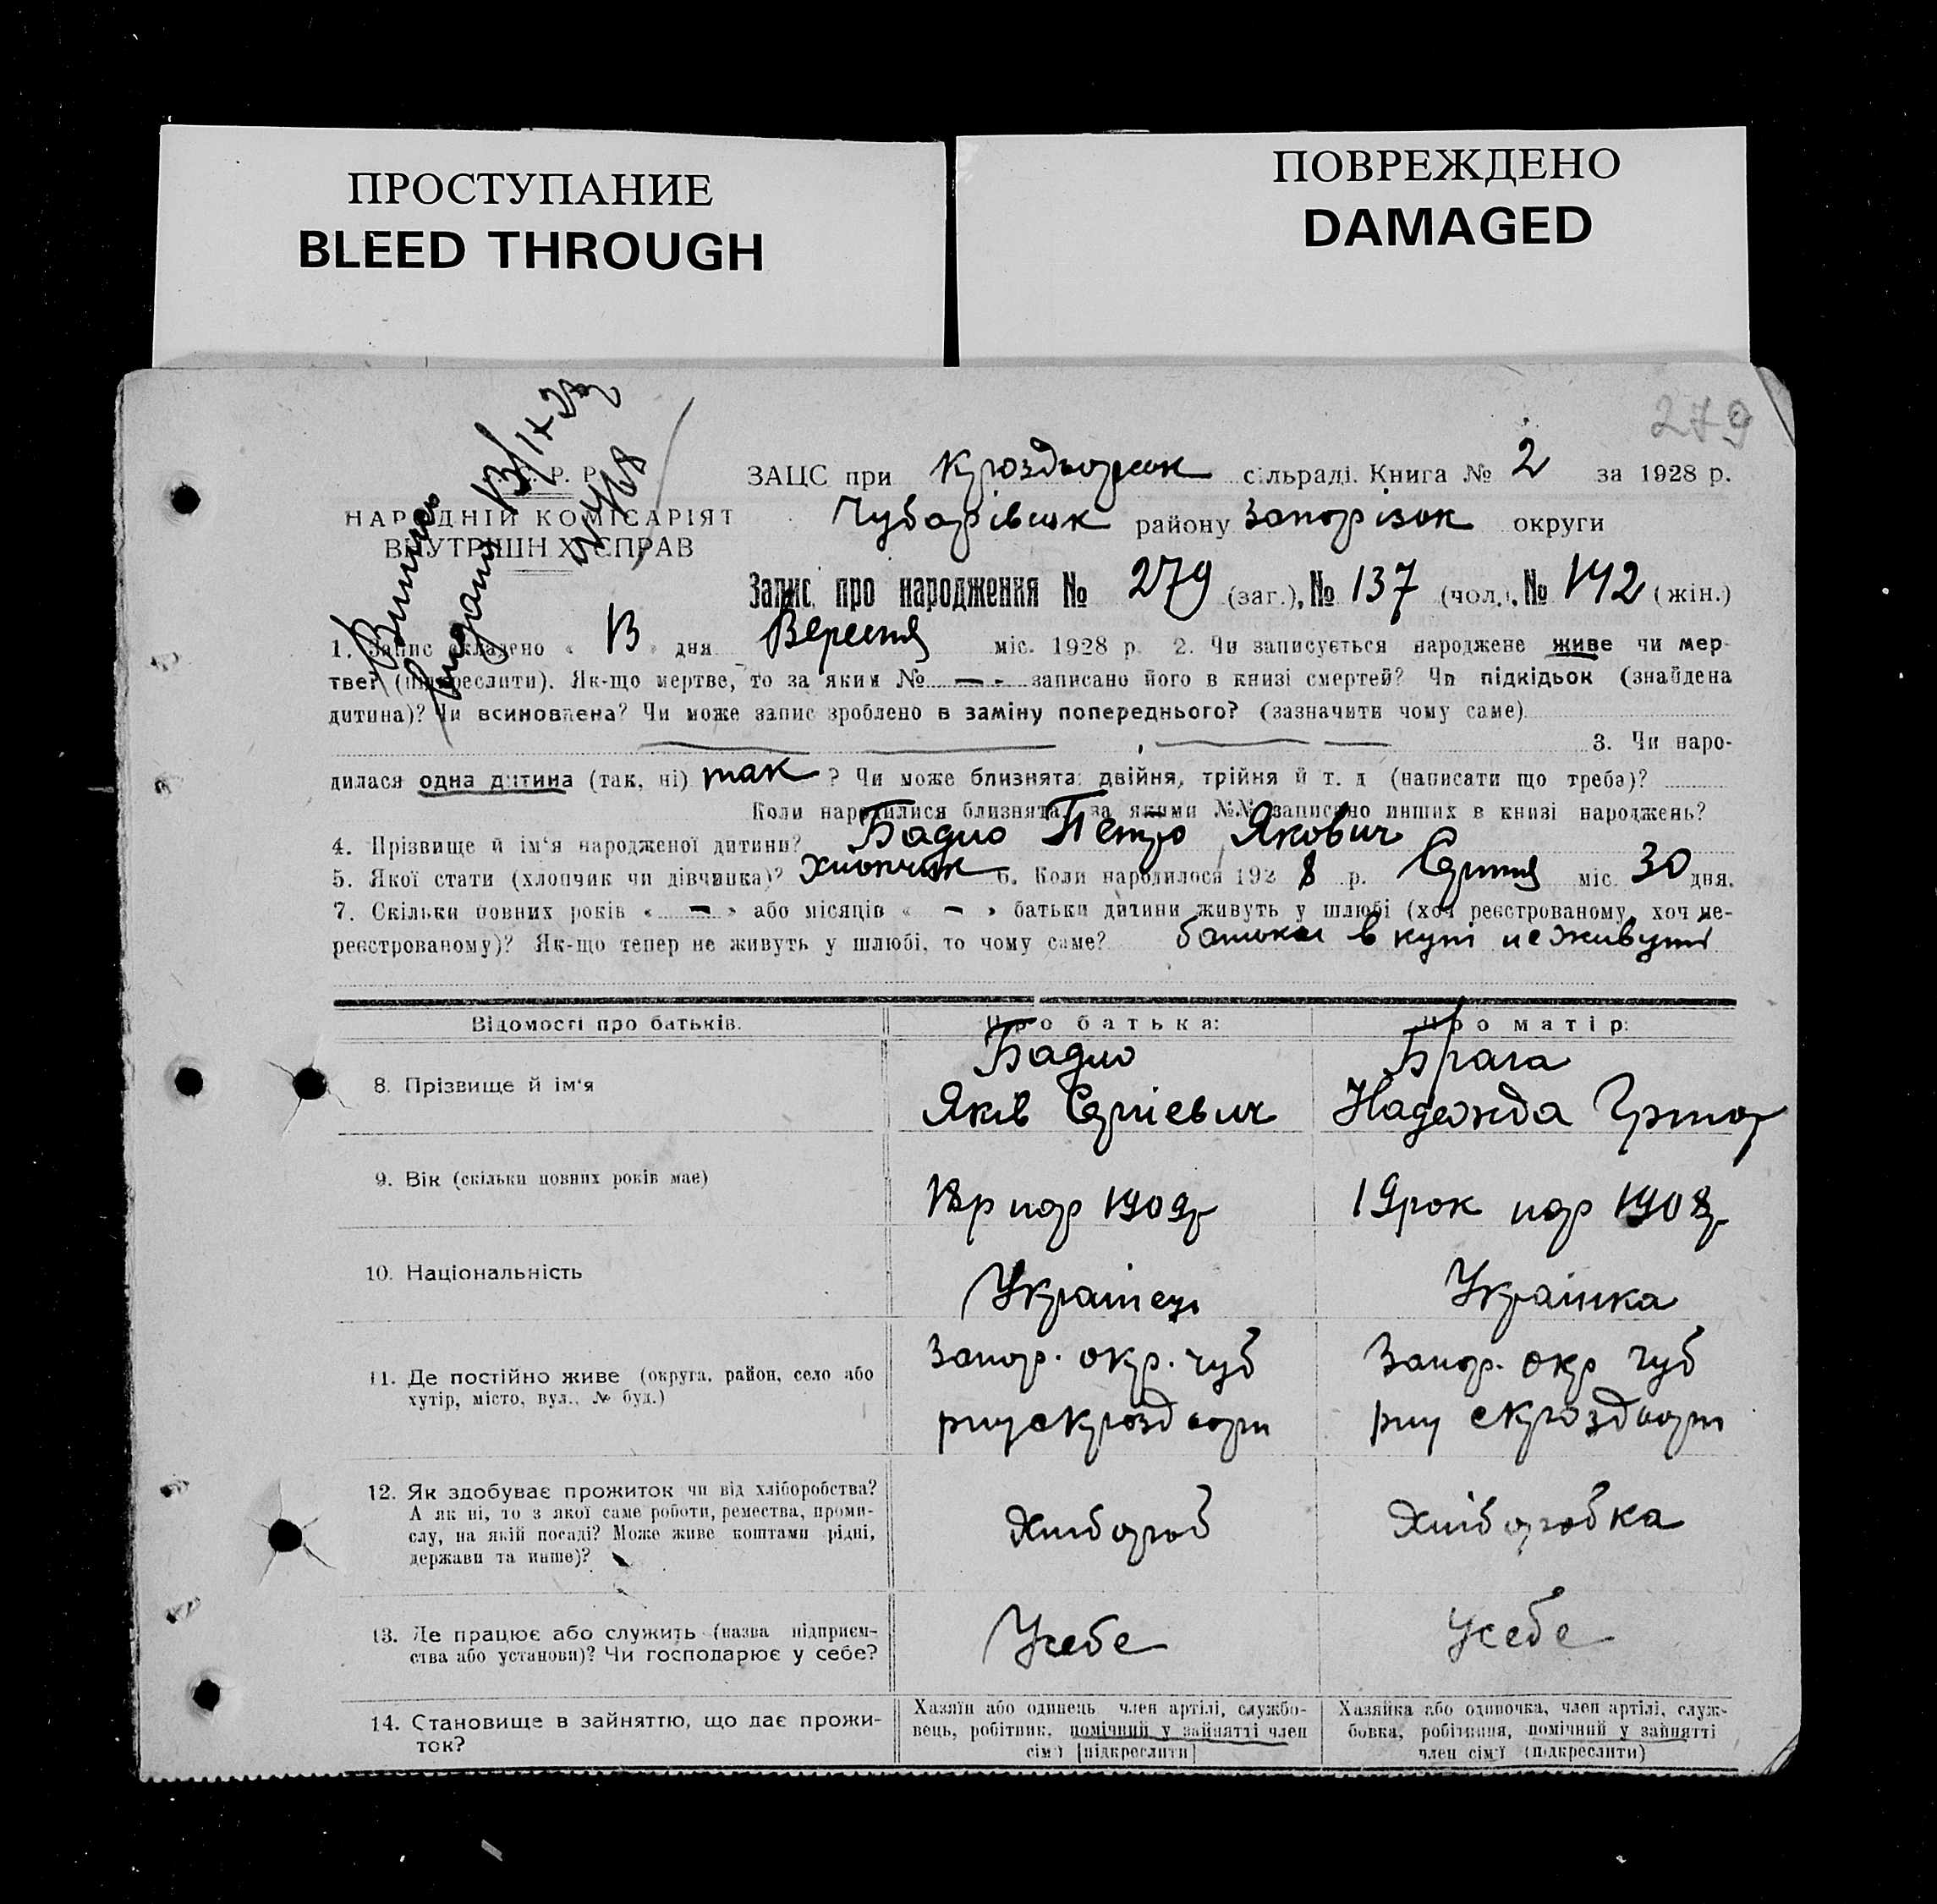 ПРОСТУПАНИЕ
BLEED THROUGH
ПОВРЕЖДЕНО
DAMAGED
279
Р. Р.
НАРОДНІЙ КОМІСАРІЯТ
ВНУТРІШНІХ СПРАВ
Випись
видана 13/IX 28р
ЗАЦС при Кроздворськ сільраді. Книга № 2 за 1928 р.
Чубарівськ району Запорізьк округи
Запис про народження № 279 (заг.), № 137 (чол.), № 142 (жін.)
1. Запис складено « 13 » дня Вересня міс. 1928 р. 2. Чи записується народжене живе чи мер-
тве? (підкреслити). Як-що мертве, то за яким № — - записано його в книзі смертей? Чи підкідьок (знайдена
дитина)? Чи всиновлена? Чи може запис зроблено в заміну попереднього? (зазначити чому саме)
3. Чи наро-
дилася одна дитина (так, ні) так ? Чи може близнята: двійня, трійня й т. д (написати що треба)?
Коли народилися близнята, за якими №№ записано инших в книзі народжень?
4. Прізвище й ім‘я народженої дитини? Бадло Петро Якович
5. Якої стати (хлопчик чи дівчинка)? Хлопчик 6. Коли народилося 192 8 р. Серпня міс. 30 дня.
7. Скільки повних років « — » або місяців « — » батьки дитини живуть у шлюбі (хоч реєстрованому, хоч не-
реєстрованому)? Як-що тепер не живуть у шлюбі, то чому саме? батьки в купі не живуть
Відомості про батьків. Про батька: Про матір:
8. Прізвище й ім‘я Бадло Яків Сергієвич Брага Надежда Григор
9. Вік (скільки повних років має) 18р нар 1909р 19рок нар 1908р
10. Національність Українець Українка
11. Де постійно живе (округа, район, село або
хутір, місто, вул., № буд.)
Запор. окр. Чуб Запор. окр Чуб
12. Як здобуває прожиток чи від хліборобства?
А як ні, то з якої саме роботи, ремества, проми-
слу, на якій посаді? Може живе коштами рідні,
держави та инше)?
Хлібороб Хліборобка
13. Де працює або служить (назва підприєм-
ства або установи)? Чи господарює у себе?
У себе У себе
14. Становище в зайняттю, що дає прожи-
ток?
Хазяїн або одинець, член артілі, службо-
вець, робітник, помічний у зайнятті член
сім‘ї [підкреслити]
Хазяйка або одиночка, член артілі, служ-
бовка, робітниця, помічний у зайнятті
член сім‘ї (підкреслити)